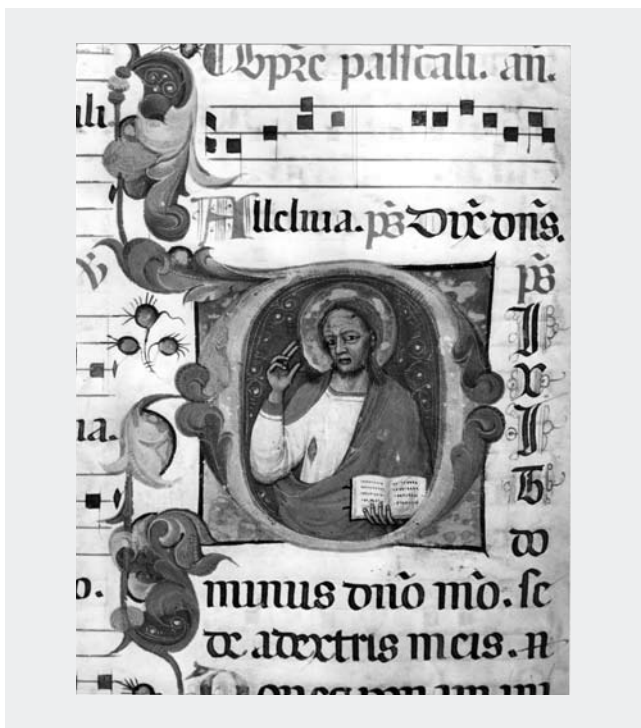 passcali. an̄.
Alleluia. ps̄ Dix̄ dn̄s.
ps̄
D
I
X
I
T
do
minus dn̄o mō. se
de adextris meis.